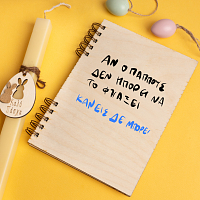 ΑΝ Ο ΠΑΠΠΟΥΣ
ΔΕΝ ΜΠΟΡΕΙ ΝΑ
ΤΟ ΦΤΙΑΞΕΙ
ΚΑΝΕΙΣ ΔΕ ΜΠΟΡΕΙ